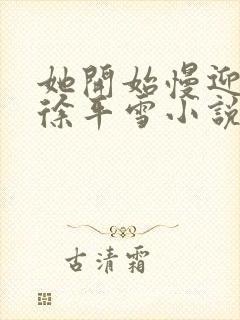 她開始慢迎
徐平雪小說
古清霜